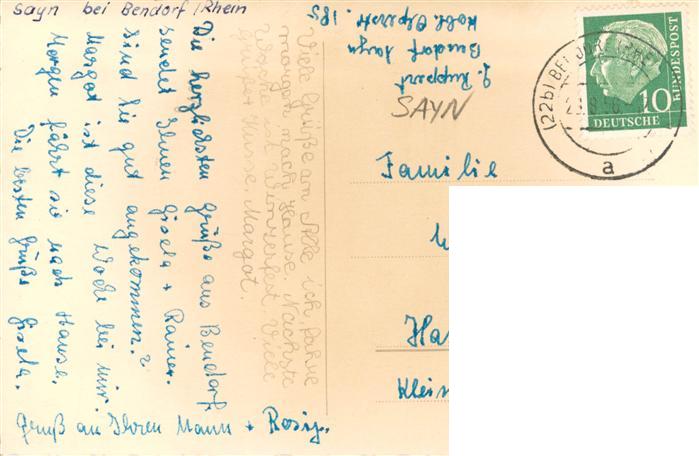 Sayn bei Bendorf/Rhein
Die herzlichsten Grüße aus Bendorf,
sendet Ihnen Gisela + Rainer.
Sind Sie gut angekommen?
Margot ist diese Woche bei mir.
Morgen fährt sie nach Hause.
Die besten Grüße Gisela.
Gruß an Ihren Mann +
Viele Grüße an Alle ich, fahre
morgen nach Hause. Nächste
Woche ist Winzerfest Viele
Grüße + Küsse, Margot.
J. Ruppert
Bendorf Sayn
185
SAYN
Familie
Ha
Klein
10
DEUTSCHE
BUNDESPOST
(22b) BENDORF
a